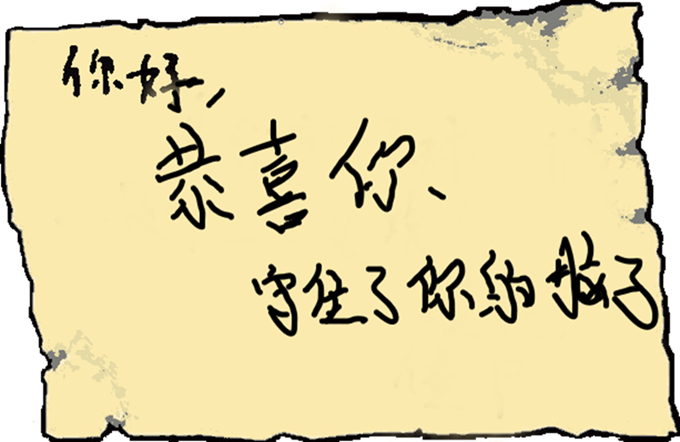 你好,
恭喜你、
守住了你的脑子